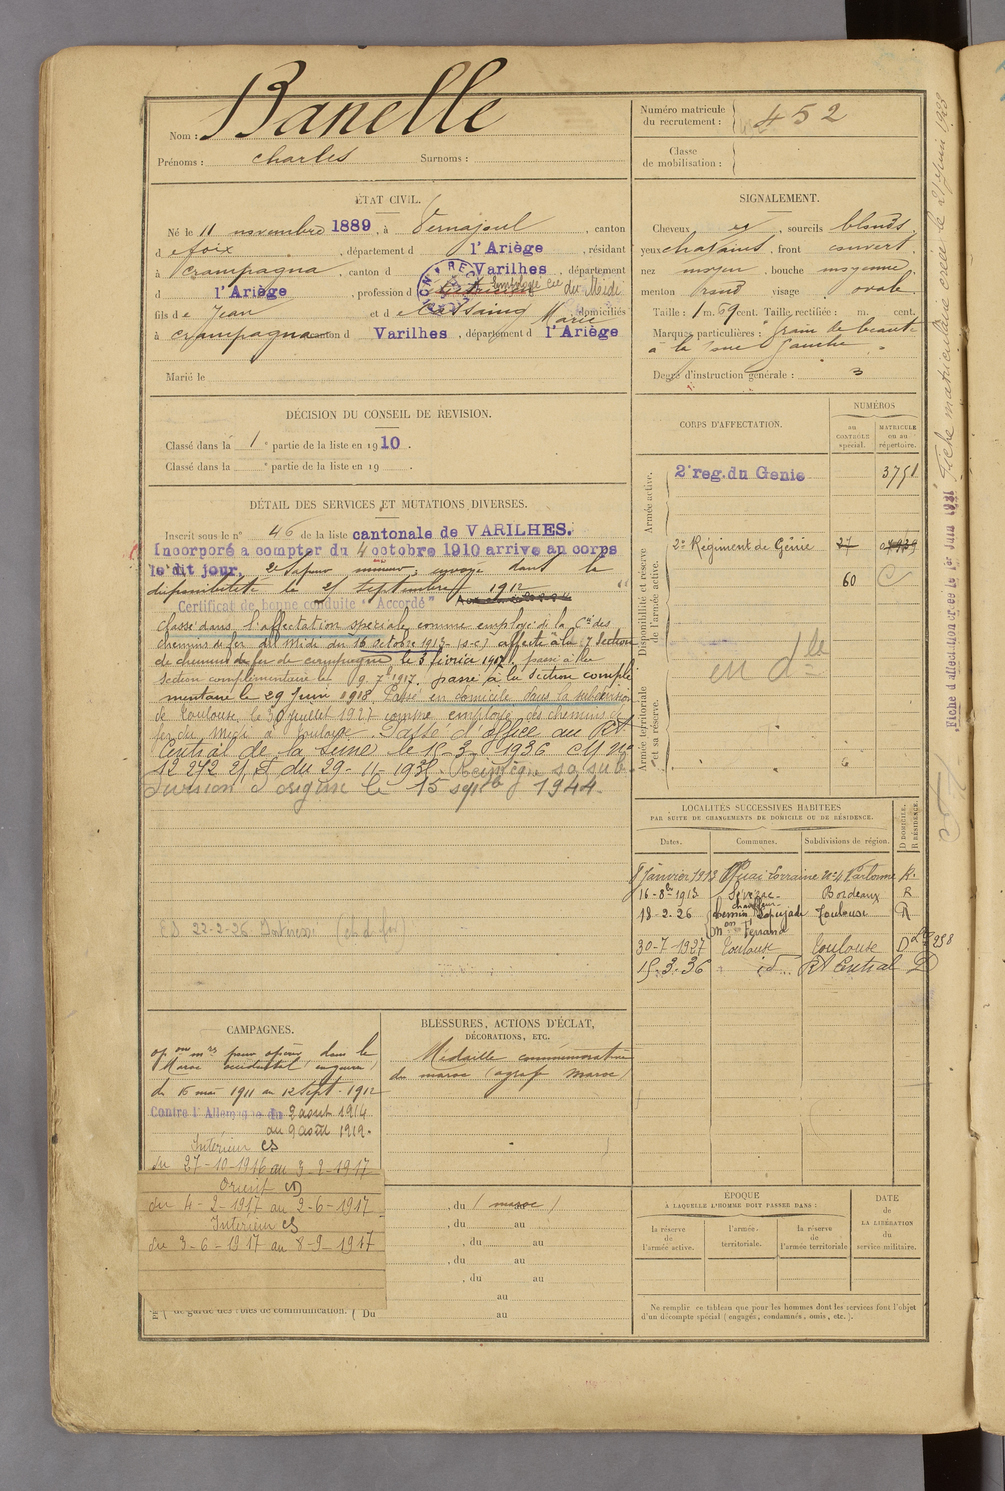 Nom : Banelle
Prénoms : Charles Surnoms :
ÉTAT CIVIL.
Né le 11 novembre 1889, à Vernajoul, canton
d e foix, département d l'Ariège, résidant
à Crampagna, canton d Varilhes, département
d l'Ariège, profession d Employé Cie du Midi
fils d e Jean et d e Cassaing Marie domiciliés
à Crampagna canton d Varilhes, département d l'Ariège
Marié le
DÉCISION DU CONSEIL DE REVISION.
Classé dans la 1e partie de la liste en 1910.
Classé dans la e partie de la liste en 19 .
DÉTAIL DES SERVICES ET MUTATIONS DIVERSES.
Inscrit sous le n° 46 de la liste cantonale de VARILHES.
Incorporé a compter du 4 octobre 1910 arrive au corps
le dit jour, 2e Sapeur mineur, envoyé dans la
disponibilité le 25 septembre 1912
Certificat de bonne conduite "Accordé"
Classé dans l'affectation spéciale comme employé de la Cie des
chemins de fer du Midi du 16 octobre 1913 (s-c) affecté à la 7e Section
de chemins de fer de campagne le 3 février 1917. passé à la
section complémentaire le 9. 7bre 1917. passé à la section complé
mentaire le 29 Juin 1918. Passé en domicile dans la subdivision
de Toulouse, le 30 juillet 1927 comme employé des chemins de
fer du Midi à Toulouse. Passé d'office au RT
Central de la Seine le 15-3-1936 CM no
12 272 21 du 29-11-193 Réintègre sa sub-
division d'origine le 15 septb 1944.
22-2-26 Intéressé (ch d fer)
CAMPAGNES.
opons mres pour opérer dans le
Maroc occidental (en guerre)
du 16 mai 1911 au 12 Sept. 1912
Contre l'Allemagne du 2 aout 1914
au 9 août 1919.
Intérieur CS
du 27-10-1916 au 3-2-1917
Orient CD
du 4-2-1917 au 2-6-1917
Interieur CS
du 3-6-1917 au 8-9-1917
de garde des voies de communication. ( Du au
BLESSURES, ACTIONS D'ÉCLAT,
DÉCORATIONS, ETC.
Médaille commémorative
du maroc (agrafe Maroc)
, du (maroc)
, du au
, du au
, du au
, du au
au
au
Numéro matricule
du recrutement : 452
Classe
de mobilisation :
SIGNALEMENT.
Cheveux et, sourcils blonds
yeux chatains, front couvert
nez moyen, bouche moyenne
menton rond visage ovale
Taille : 1 m. 69 cent. Taille rectifiée : m. cent.
Marques particulières : grain de beauté
à la joue gauche
Degré d'instruction générale : 3
CORPS D'AFFECTATION.
NUMÉROS
au
CONTRÔLE
spécial.
MATRICULE
ou au
répertoire.
Armée active.
2e reg. du Genie 3751
Disponibilité et réserve
de l'armée active.
2e Régiment de Génie 27
60
en dlle
Armée territoriale
et sa réserve.
6
LOCALITÉS SUCCESSIVES HABITÉES
PAR SUITE DE CHANGEMENTS DE DOMICILE OU DE RÉSIDENCE.
Dates. Communes. Subdivisions de région. D DOMICILE. R RÉSIDENCE.
8 Janvier 1913 Quai Lorraine N° 4 Narbonne R.
16-8bre 1913 Bordeaux R
18-2-26 chauffeur Chemin Lapujade Toulouse R
mon Ferrand
30-7-1927 Toulouse Toulouse D
15.3.36 id... RT Central D
ÉPOQUE
À LAQUELLE L'HOMME DOIT PASSER DANS :
la réserve
de
l'armée active.
l'armée
territoriale.
la réserve
de
l'armée territoriale
DATE
de
LA LIBÉRATION
du
service militaire.
Ne remplir ce tableau que pour les hommes dont les services font l'objet
d'un décompte spécial (engagés, condamnés, omis, etc.).
Fiche d'affectation créée le 1er Juin 1931
Fiche matriculaire créée le 21 Juin 1928